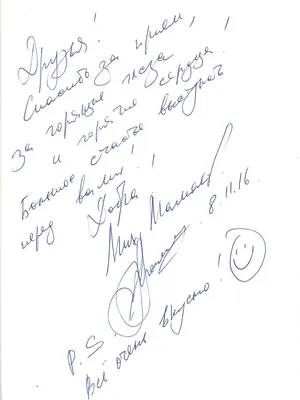 Друзья!
Спасибо за прием,
за горящие глаза
и горячие сердца!
Большое счастье выступать
перед вами!
Добра
8.11.16.
P.S.
Всё очень вкусно!